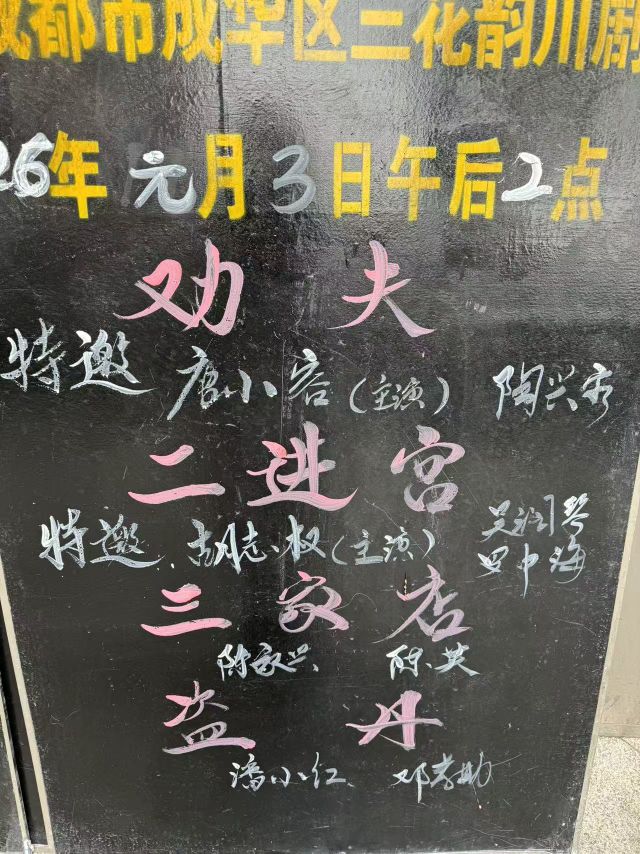 成都市成华区三花韵川剧
26年元月3日午后2点
劝夫
特邀 唐小容(主演) 陶兴秀
二进宫
特邀、胡志权(主演) 吴润琴
罗中海
三家店
陈家兴 陈英
盗丹
潘小红、邓孝助